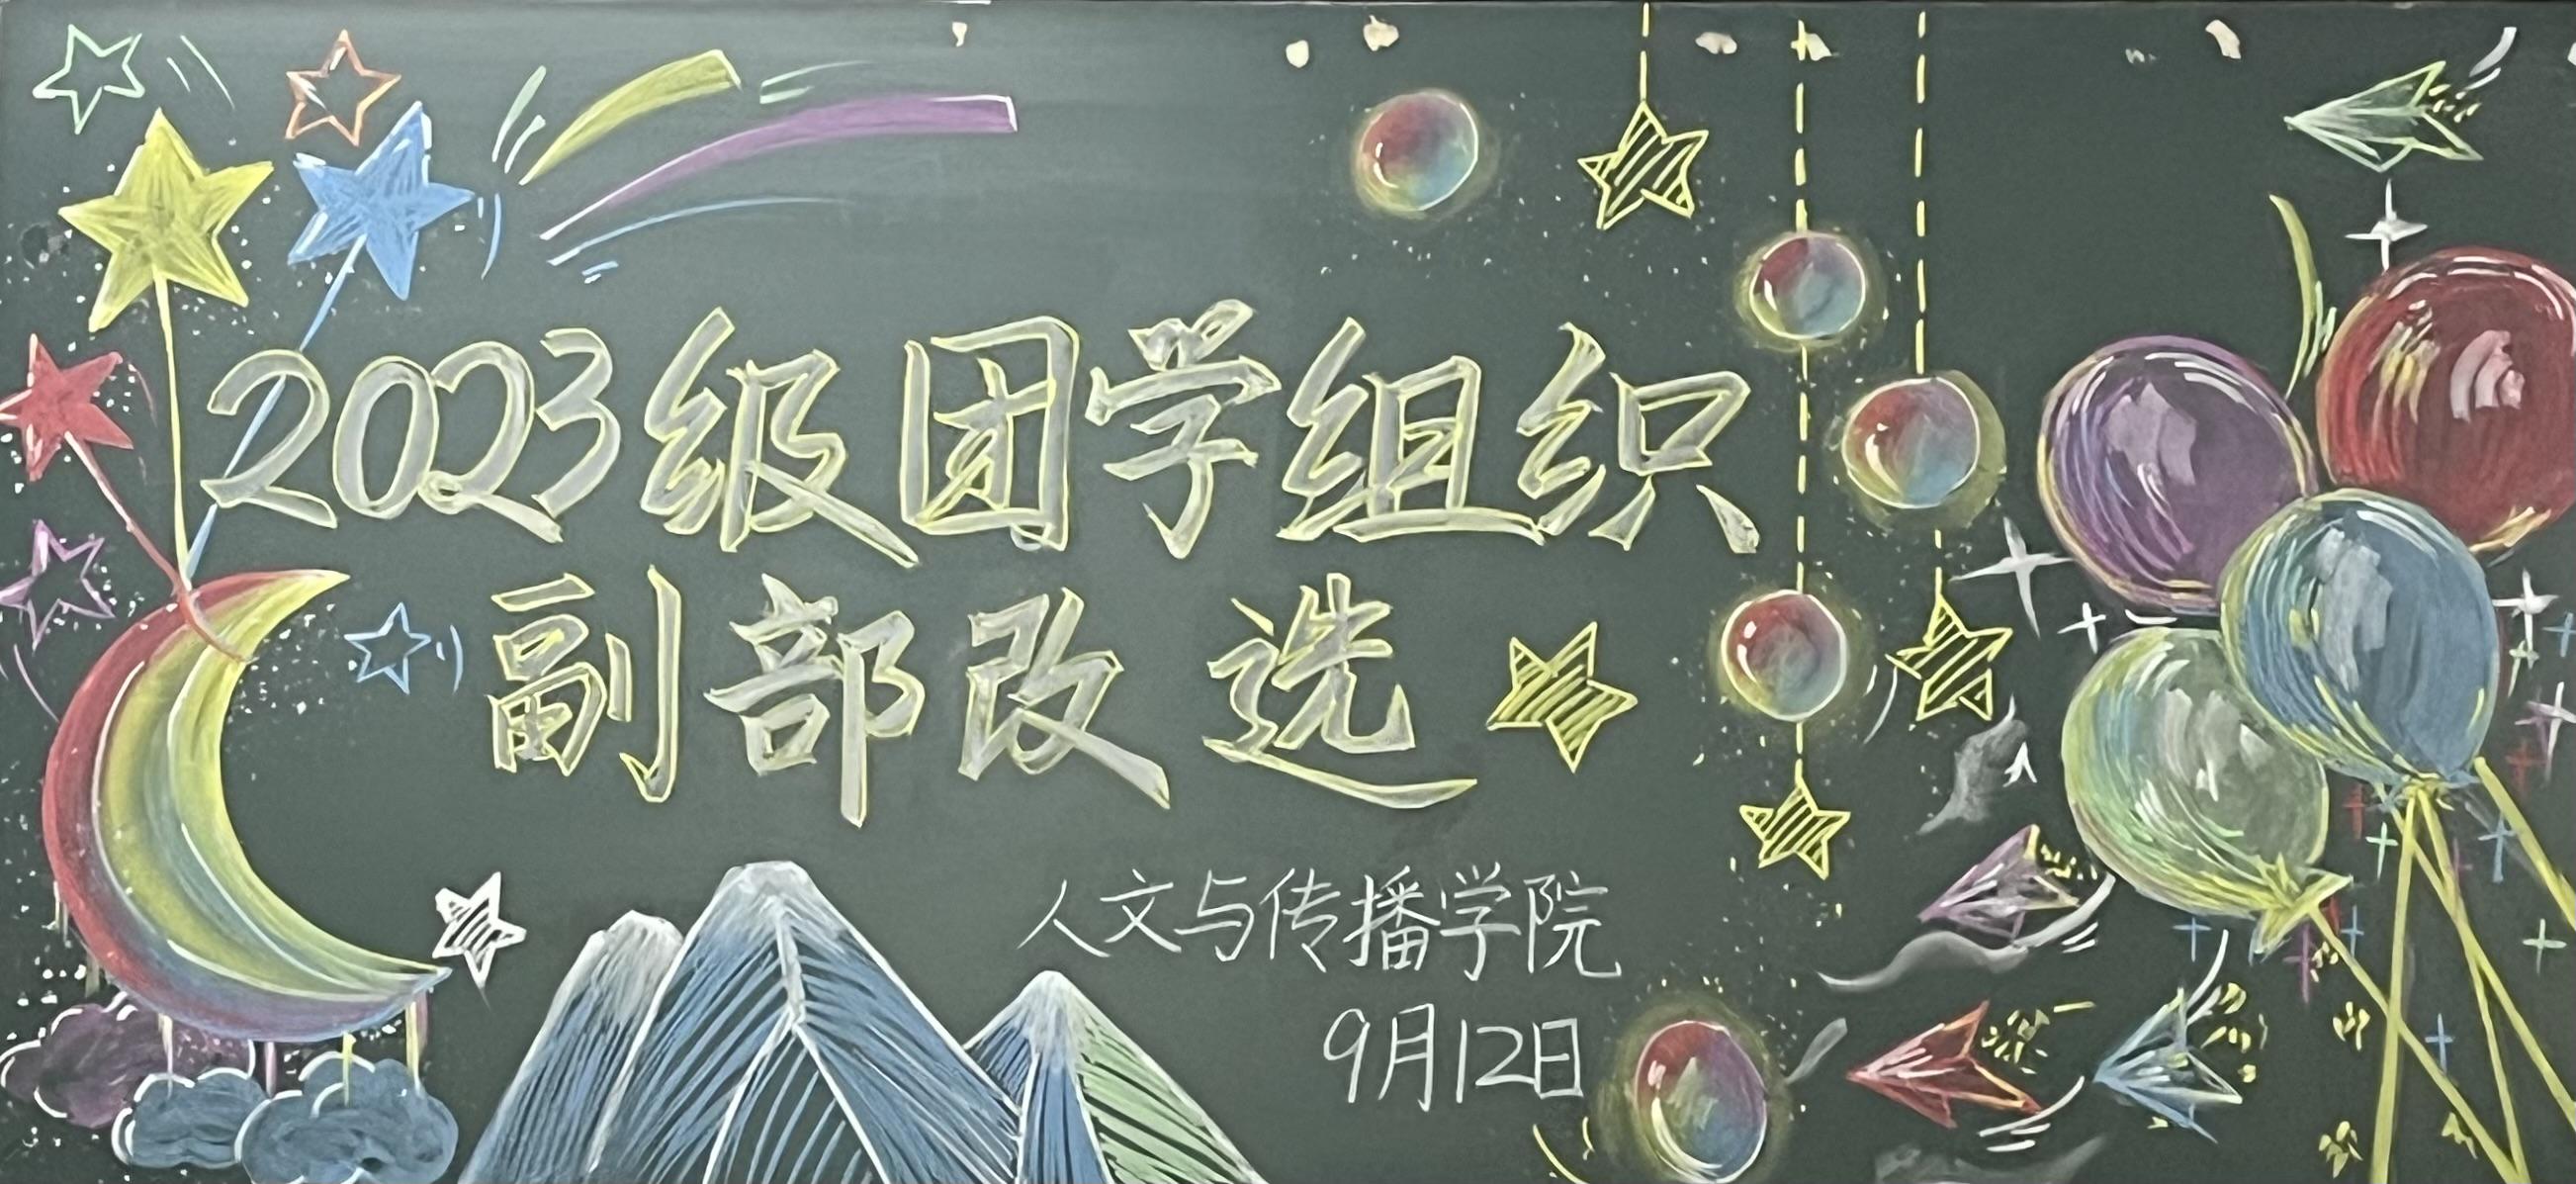 2023级团学组织
副部改选
人文与传播学院
9月12日